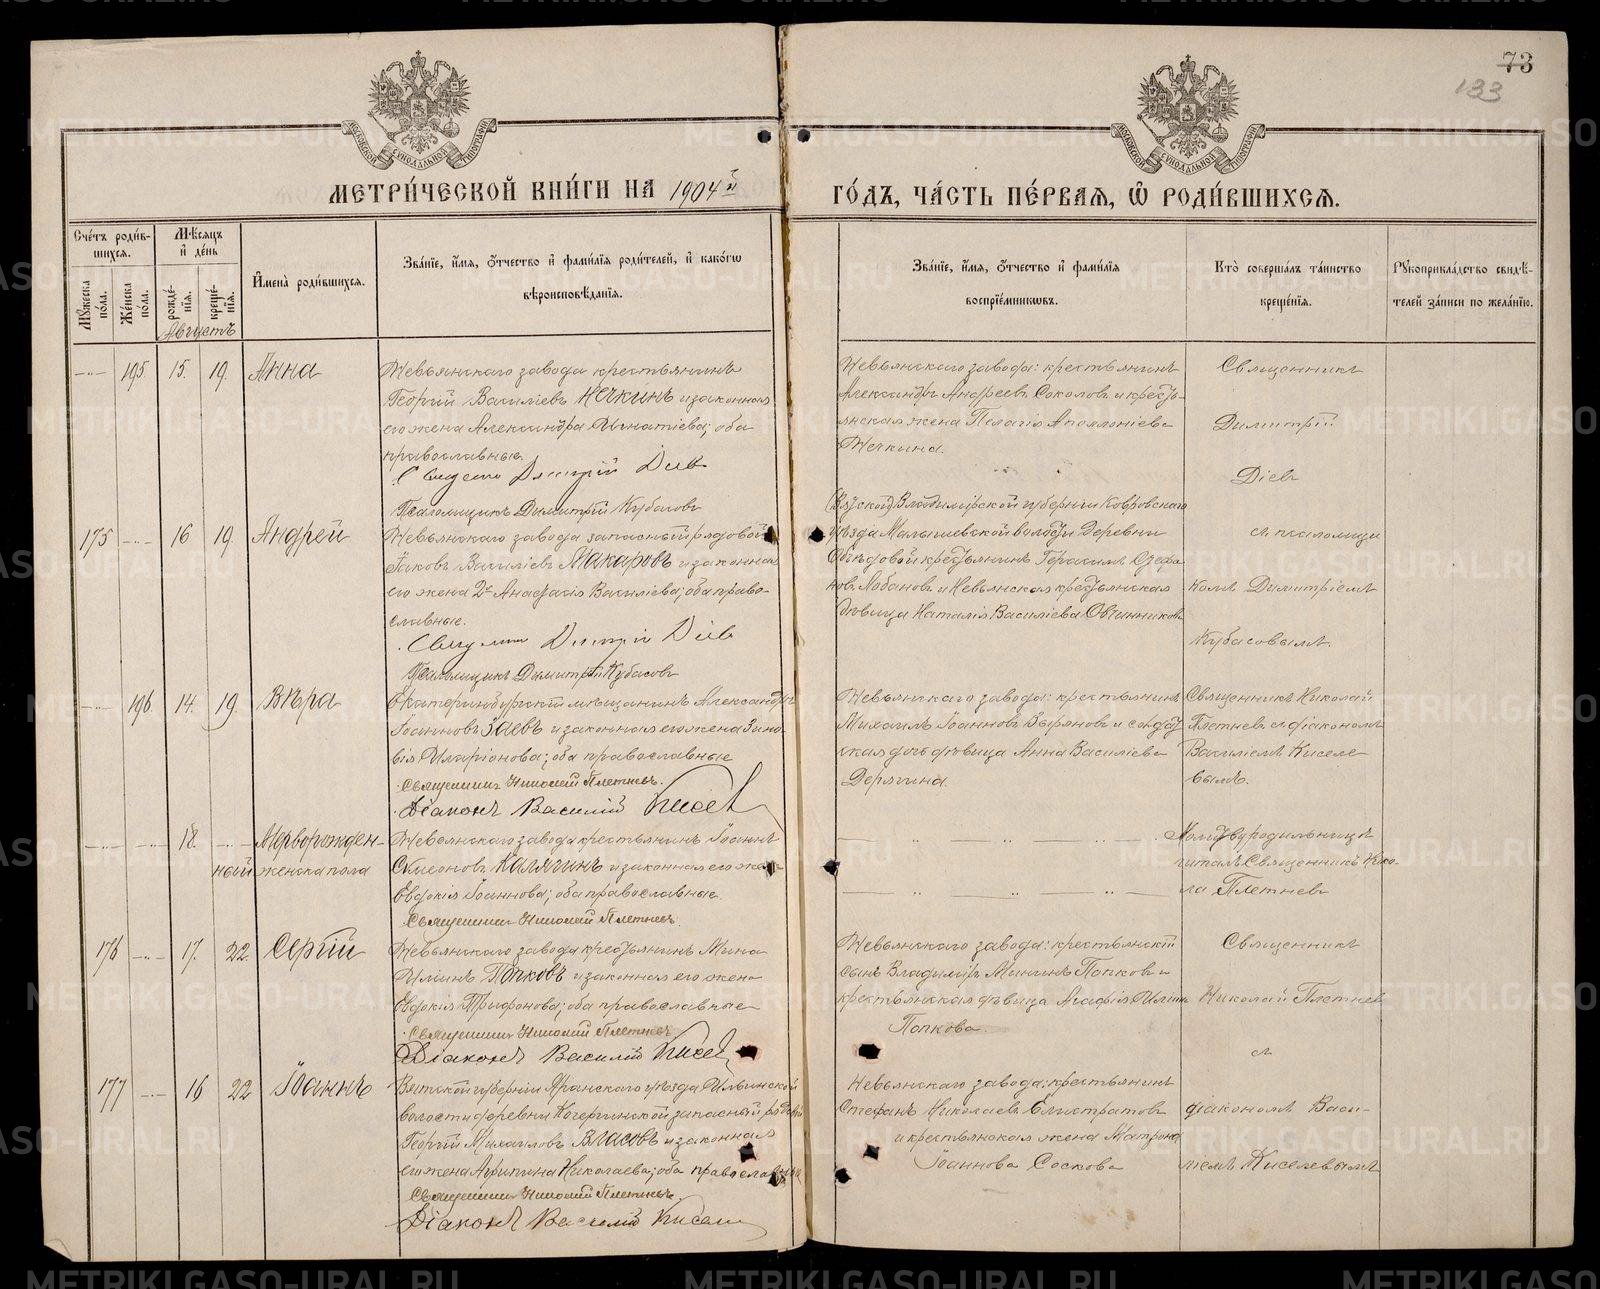 73
133
МОСКОВСКОЙ СѴНОДАЛЬНОЙ ТИПОГРАФІИ
МОСКОВСКОЙ СѴНОДАЛЬНОЙ ТИПОГРАФІИ
МЕТРИ́ЧЕСКОЙ КНИ́ГИ НА 1904й
ГО́ДЪ, ЧА́СТЬ ПЕ́РВАЯ, Ѡ РОДИ́ВШИХСЯ.
Сче́тъ роди́в-
шихся.
Мѣ́сяцъ
и де́нь
Му́жеска по́ла.
Же́нска по́ла.
рожде́-
нія.
креще́-
нія.
Августъ
Имена̀ роди́вшихся.
Зва́ніе, и́мя, о́тчество и фами́лія роди́телей, и како́гѡ
вѣроисповѣ́данія.
Зва́ніе, и́мя, о́тчество и фами́лія
воспріе́мниковъ.
Кто̀ соверша́лъ та́инство
креще́нія.
Рукоприкла́дство свидѣ́-
телей за́писи по жела́нію.
195 15. 19. Анна
Невьянскаго завода крестьянинъ
Георгій Василіевъ Нечкинъ и законная
его жена Александра Игнатіева; оба
православные.
Священ Димитрій Діев
Псаломщикъ Димитрій Кубасовъ
Невьянскаго завода: крестьянинъ
Александръ Андреевъ Соколовъ и кресть-
янская жена Пелагія Аполлоніева
Нечкина.
Священникъ
Димитрій
Діевъ
175 16 19 Андрей
Невьянскаго завода запасный рядовой
Іаковъ Василіевъ Макаровъ и законная
его жена 2я Анастасія Василіева; оба право-
славные.
Димитрій Діев
Псаломщикъ Димитрій Кубасовъ
Владимірской губерніи Ковровскаго
уѣзда Малышевской волости деревни
крестьянинъ Герасимъ Стефа
новъ Лобановъ и Невьянская крестьянская
дѣвица Наталія Василіева Овчинникова
съ псаломщи
комъ Димитріемъ
Кубасовымъ.
196 14. 19. Вѣра
Екатеринбургскій мѣщанинъ Александръ
Іоанновъ Заевъ и законная его жена Зино
вія Иларіонова; оба православные
Священникъ Николай Плетневъ.
Діаконъ Василій Кисел
Невьянскаго завода: крестьянинъ
Михаилъ Іоанновъ Зыряновъ и солдат
ская дочь дѣвица Анна Василіева
Дерягина.
Священникъ Николай
Плетневъ съ діакономъ
Василіемъ Киселе
вымъ.
18. Мерворожден-
ный женска пола
Невьянскаго завода крестьянинъ Іоаннъ
Симеоновъ Калягинъ и законная его жена
Евдокія Іоаннова; оба православные.
Священникъ Николай Плетневъ.
Молитву родильницѣ
читалъ Священникъ Нико
ла Плетневъ
176 17. 22. Сергій
Невьянскаго завода крестьянинъ Мина
Иліинъ Попковъ и законная его жена
Евдокія Трифонова; оба православные
Священникъ Николай Плетневъ
Діаконъ Василій Кисел
Невьянскаго завода: крестьянскій
сынъ Владиміръ Мининъ Попковъ и
крестьянская дѣвица Агафія Иліина
Попкова.
Священникъ
Николай Плетнев
съ
177 16 22 Іоаннъ
Вятской губерніи Яранскаго уѣзда Ильинской
волости деревни Кочергинской запасный рядовой
Георгій Михаиловъ Власовъ и законная
его жена Агрипина Николаева; оба православные
Священникъ Николай Плетневъ.
Діаконъ Василій Кисел
Невьянскаго завода: крестьянинъ
Стефанъ Николаевъ Елистратовъ
и крестьянская жена Матрона
Іоаннова Соскова
діакономъ Васи-
ліемъ Киселевымъ
METRIKI.GASO-URAL.RU